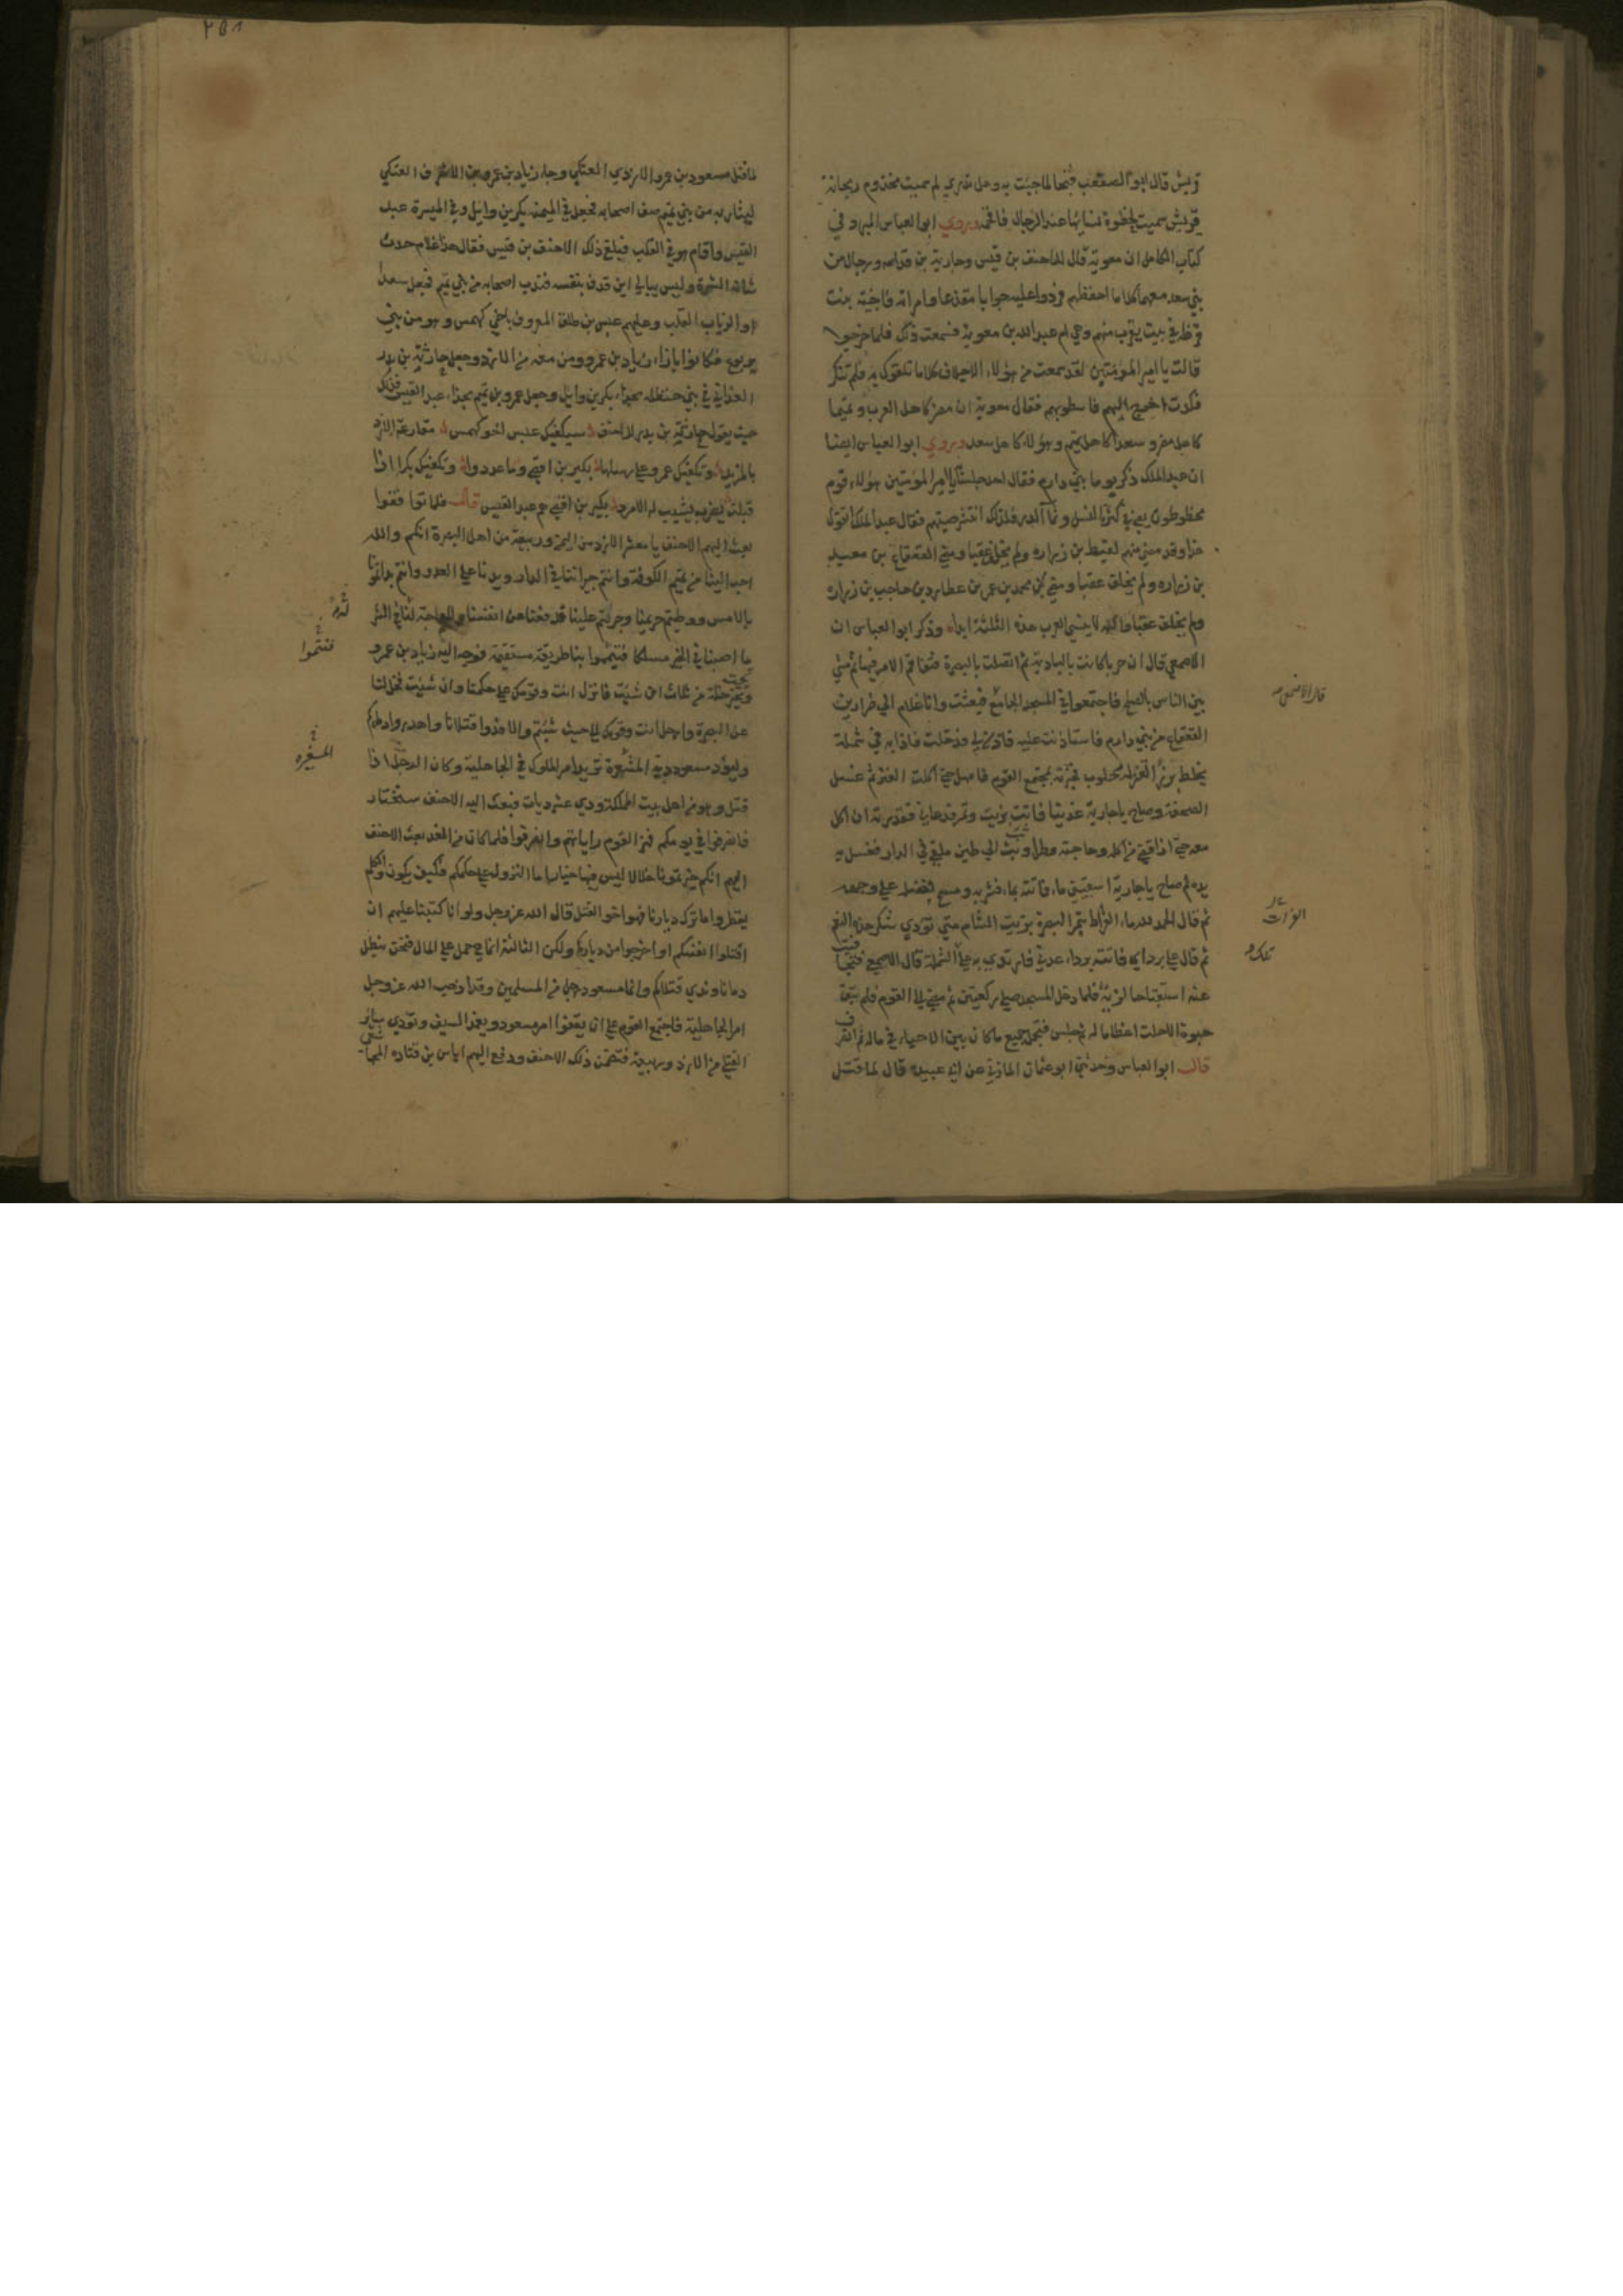 قريش قال ابو الصقعب فتحا لما جئت به وهل تدري لم سميت مخزوم ريحانة
قريش سميت لحظوة نسائها عند الرجال فافحم وروي ابو العباس المبرد في
كتاب الكامل ان معوية قال للاحنف بن قيس وجارية بن قدامه ورجال من
بني سعد معهما كلاما احفظهم فردوا عليه جوابا مقذعا وامراته فاختة بنت
قرظة في بيت يقرب منهم وهي ام عبد الله بن معوية فسمعت ذلك فلما خرجوا
قالت يا امير المؤمنين لقد سمعت من هؤلاء الاجلاف كلاما تلقوك به فلم تنكر
فكدت اخرج اليهم فاسطو بهم فقال معوية ان مضر كاهل العرب وتميما
كاهل مضر وسعدا كاهل تميم وهؤلاء كاهل سعد وروي ابو العباس ايضا
ان عبد الملك ذكر يوما بني دارم فقال احد جلسائه يا امير المؤمنين هؤلاء قوم
محظوظون يعني في كثرة النسل ونما الدر فلذلك انتشر صيتهم فقال عبد الملك اتقول
هذا وقد مضى منهم لقيط بن زراره ولم يخلف عقبا ومضى القعقاع بن معبد
بن زراره ولم يخلف عقبا ومضى محمد بن عمير بن عطارد بن حاجب بن زراره
ولم يخلف عقبا والله لا ينسى العرب هذه الثلثة ابدا وذكر ابو العباس ان
الاصمعي قال ان حربا كانت بالبادية ثم اتصلت بالبصرة فتفاقم الامر فيها ثم مشى
بين الناس بالصلح فاجتمعوا في المسجد الجامع فبعثت وانا غلام الى ضرار بن
القعقاع من بني دارم فاستاذنت عليه فاذن لي فدخلت فاذا به في شملة
يخلط بزرا لعنز له حلوب فخبرته بمجتمع القوم فامهل حتى اكلت العنز ثم غسل
الصحفة وصاح يا جارية غدينا فاتته بزيت وتمر فدعاني فقذرته ان اكل
معه حتى اذا قضى من اكله وحاجته وطرا وثب الى طين ملقى في الدار فغسل به
يده ثم صاح يا جارية اسقيني ماء فاتته بماء فشربه ومسح فضله على وجهه
ثم قال الحمد لله ماء الفرات بتمر البصرة بزيت الشام متى نؤدي شكر هذه النعم
ثم قال علي بردائي فاتته برداء عدني فارتدى به على الشملة قال الاصمعي فتجافيت
عنه استقباحا لزيه فلما دخل المسجد صلى ركعتين ثم مشى الى القوم فلم تبق
حبوة الا حلت اعظاما له ثم جلس فتحمل جميع ما كان بين الاحياء في ماله ثم انصرف
قال ابو العباس وحدثني ابو عثمان المازني عن ابي عبيدة قال لما قتل
قال الاصمعي
الفرات
تلك
٢٥١
لما قتل مسعود بن عمرو الازدي العتكي وجاء زياد بن عمرو بن الاشرف العتكي
ليثار به من بني تميم صف اصحابه فجعل في الميمنة بكر بن وايل وفي الميسرة عبد
القيس واقام هو في القلب فبلغ ذلك الاحنف بن قيس فقال هذا غلام حدث
شانه الشهرة وليس يبالي اين قذف بنفسه فندب اصحابه من بني تميم فجعل سعدا
والرباب القلب وعليهم عبس بن طلق المعروف باخي كهمس وهو من بني
يربوع فكانوا بازاء زياد بن عمرو ومن معه من الازد وجعل حارثة بن بدر
الغداني في بني حنظلة بحذاء بكر بن وايل وجعل عمرو بن تميم بحذاء عبد القيس فذلك
حيث يقول حارثة بن بدر للاحنف سيكفيك عبس اخو كهمس مقارعة الازد
بالمربد وتكفيك عمرو على رسلها بكير بن افصى وما عددوا وتكفيك بكرا اذا
قبلت بضرب يشيب له الامرد بكير بن افصى هم عبد القيس قال فلما تواقفوا
بعث اليهم الاحنف يا معشر الازد من اليمن وربيعة من اهل البصرة انكم والله
احب الينا من تميم الكوفة وانتم جيراننا في الدار ويدنا على العدو وانتم بداتمونا
بالامس ووطيتم حريمنا وحرقتم علينا فدفعنا عن انفسنا ولا حاجة لنا في الشر
ما اصبنا في الخير مسلكا فتيمموا بنا طريقة مستقيمة فوجه اليه زياد بن عمرو
تخير خلة من ثلاث ان شئت فانزل انت وقومك على حكمنا وان شئت فخل لنا
عن البصرة وارحل انت وقومك الى حيث شئتم والا فدوا قتلانا واهدروا دماءكم
وليؤد مسعود دية المشهرة نريد امر الملوك في الجاهلية وكان الرجل اذا
قتل وهو من اهل بيت المملكة ودي عشر ديات فبعث اليه الاحنف سنختار
فانصرفوا في يومكم فهز القوم راياتهم وانصرفوا فلما كان من الغد بعث الاحنف
اليهم انكم خيرتمونا خلالا ليس فيها خيار اما النزول على حكمكم فكيف يكون والكلم
يقطر واما ترك ديارنا فهو اخو القتل قال الله عز وجل ولو انا كتبنا عليهم ان
اقتلوا انفسكم او اخرجوا من دياركم ولكن الثالثة انما هي حمل على المال فنحن نبطل
دماءنا وندي قتلاكم وانما مسعود رجل من المسلمين وقد اذهب الله عز وجل
امر الجاهلية فاجتمع القوم على ان يقفوا امر مسعود ويغمد السيف وتؤدى ساير
القتلى من الازد وربيعة فتضمن ذلك الاحنف ودفع اليهم اياس بن قتاده المجاشعي
فتيمموا
المشهره